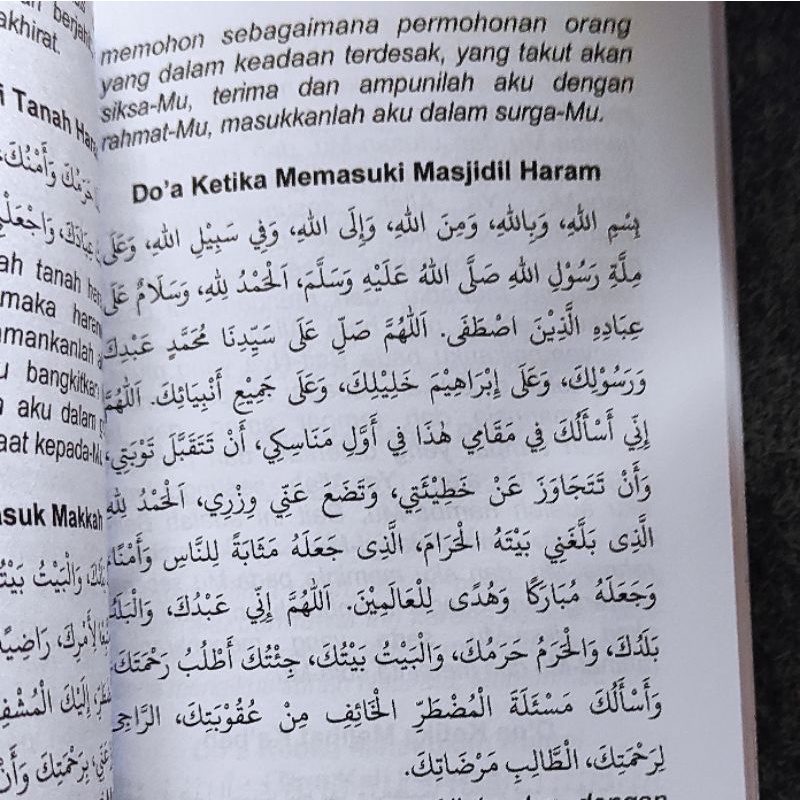 berjah
akhirat.
i Tanah Hara
حَرَمُكَ وَأَمْنُكَ،
عِبَادَكَ، وَاجْعَلْنِي
ah tanah
maka haram
mankanlah
u bangkitkan
aku dalam
aat kepada-M
asuk Makkah
وَالْبَيْتُ بَيْتُ
لِأَمْرِكَ، رَاضِيً
إِلَيْكَ الْمُشْفِ
بِرَحْمَتِكَ وَأَنْ
memohon sebagaimana permohonan orang
yang dalam keadaan terdesak, yang takut akan
siksa-Mu, terima dan ampunilah aku dengan
rahmat-Mu, masukkanlah aku dalam surga-Mu.
Do'a Ketika Memasuki Masjidil Haram
بِسْمِ اللهِ، وَبِاللهِ، وَمِنَ اللهِ، وَإِلَى اللهِ، وَفِي سَبِيْلِ اللهِ، وَعَلَى
مِلَّةِ رَسُوْلِ اللهِ صَلَّى اللهُ عَلَيْهِ وَسَلَّمَ، اَلْحَمْدُ لِلهِ، وَسَلَامٌ عَلَى
عِبَادِهِ الَّذِيْنَ اصْطَفَى. اَللّٰهُمَّ صَلِّ عَلَى سَيِّدِنَا مُحَمَّدٍ عَبْدِكَ
وَرَسُوْلِكَ، وَعَلَى إِبْرَاهِيْمَ خَلِيْلِكَ، وَعَلَى جَمِيْعِ أَنْبِيَائِكَ. اَللّٰهُمَّ
إِنِّي أَسْأَلُكَ فِي مَقَامِي هٰذَا فِي أَوَّلِ مَنَاسِكِي، أَنْ تَتَقَبَّلَ تَوْبَتِي،
وَأَنْ تَتَجَاوَزَ عَنْ خَطِيْئَتِي، وَتَضَعَ عَنِّي وِزْرِي، اَلْحَمْدُ لِلهِ
الَّذِى بَلَّغَنِي بَيْتَهُ الْحَرَامَ، الَّذِى جَعَلَهُ مَثَابَةً لِلنَّاسِ وَأَمْنًا،
وَجَعَلَهُ مُبَارَكًا وَهُدًى لِلْعَالَمِيْنَ. اَللّٰهُمَّ إِنِّي عَبْدُكَ، وَالْبَلَدُ
بَلَدُكَ، وَالْحَرَمُ حَرَمُكَ، وَالْبَيْتُ بَيْتُكَ، جِئْتُكَ أَطْلُبُ رَحْمَتَكَ،
وَأَسْأَلُكَ مَسْئَلَةَ الْمُضْطَرِّ الْخَائِفِ مِنْ عُقُوْبَتِكَ، الرَّاجِى
لِرَحْمَتِكَ، الْطَّالِبِ مَرْضَاتِكَ.